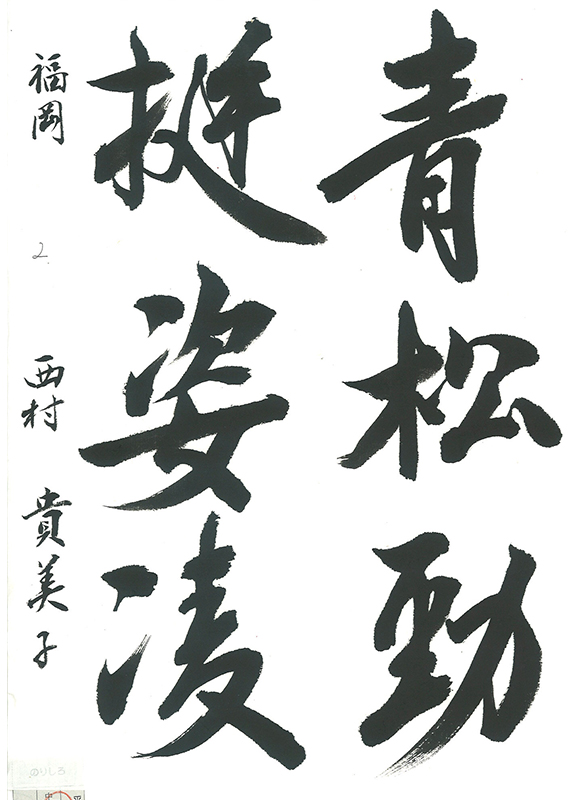 青松勁
挺姿凌
福岡 2. 西村 貴美子
のりしろ